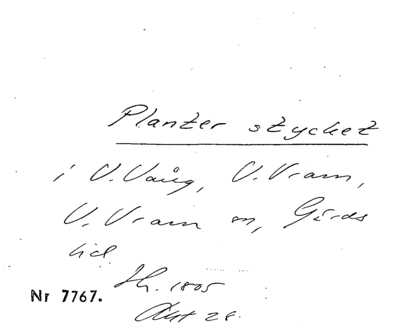 Planter stycket
i V.Vång, V.Vram,
V. Vram sn, Gärds
hd.
Sk. 1805
Akt 28.
Nr 7767.